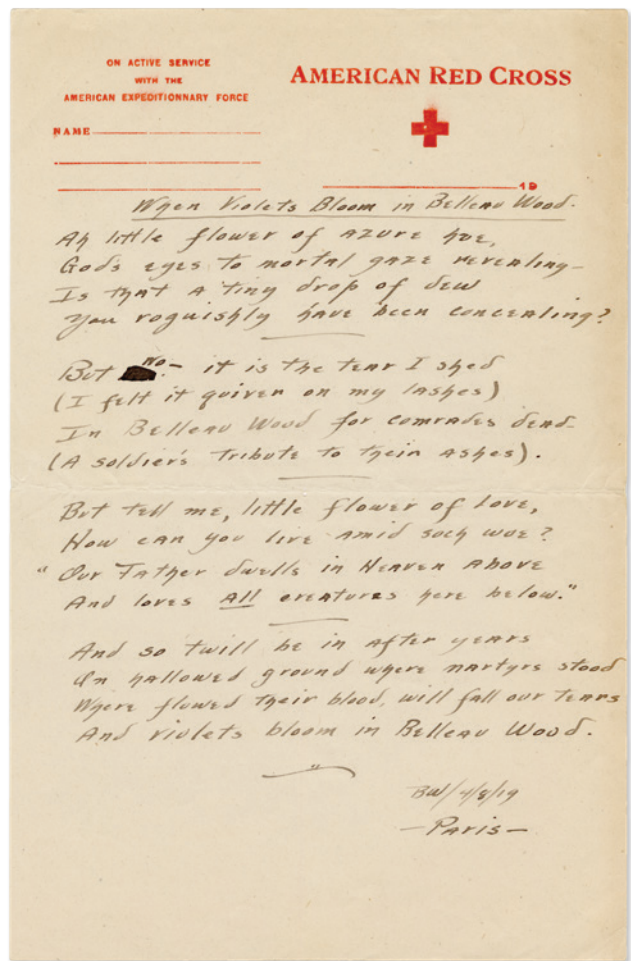 ON ACTIVE SERVICE
WITH THE
AMERICAN EXPEDITIONNARY FORCE
AMERICAN RED CROSS
NAME
19
When Violets Bloom in Belleau Wood.
Ah little flower of azure hue,
God's eyes to mortal gaze revealing—
Is that a tiny drop of dew
You roguishly have been concealing?
But no— it is the tear I shed
(I felt it quiver on my lashes)
In Belleau Wood for comrades dead
(A soldier's tribute to their ashes).
But tell me, little flower of love,
How can you live amid such woe?
"Our Father dwells in Heaven above
And loves all creatures here below."
And so twill be in after years
On hallowed ground where martyrs stood
Where flowed their blood, will fall our tears
And violets bloom in Belleau Wood.
BW/4/8/19
—Paris—